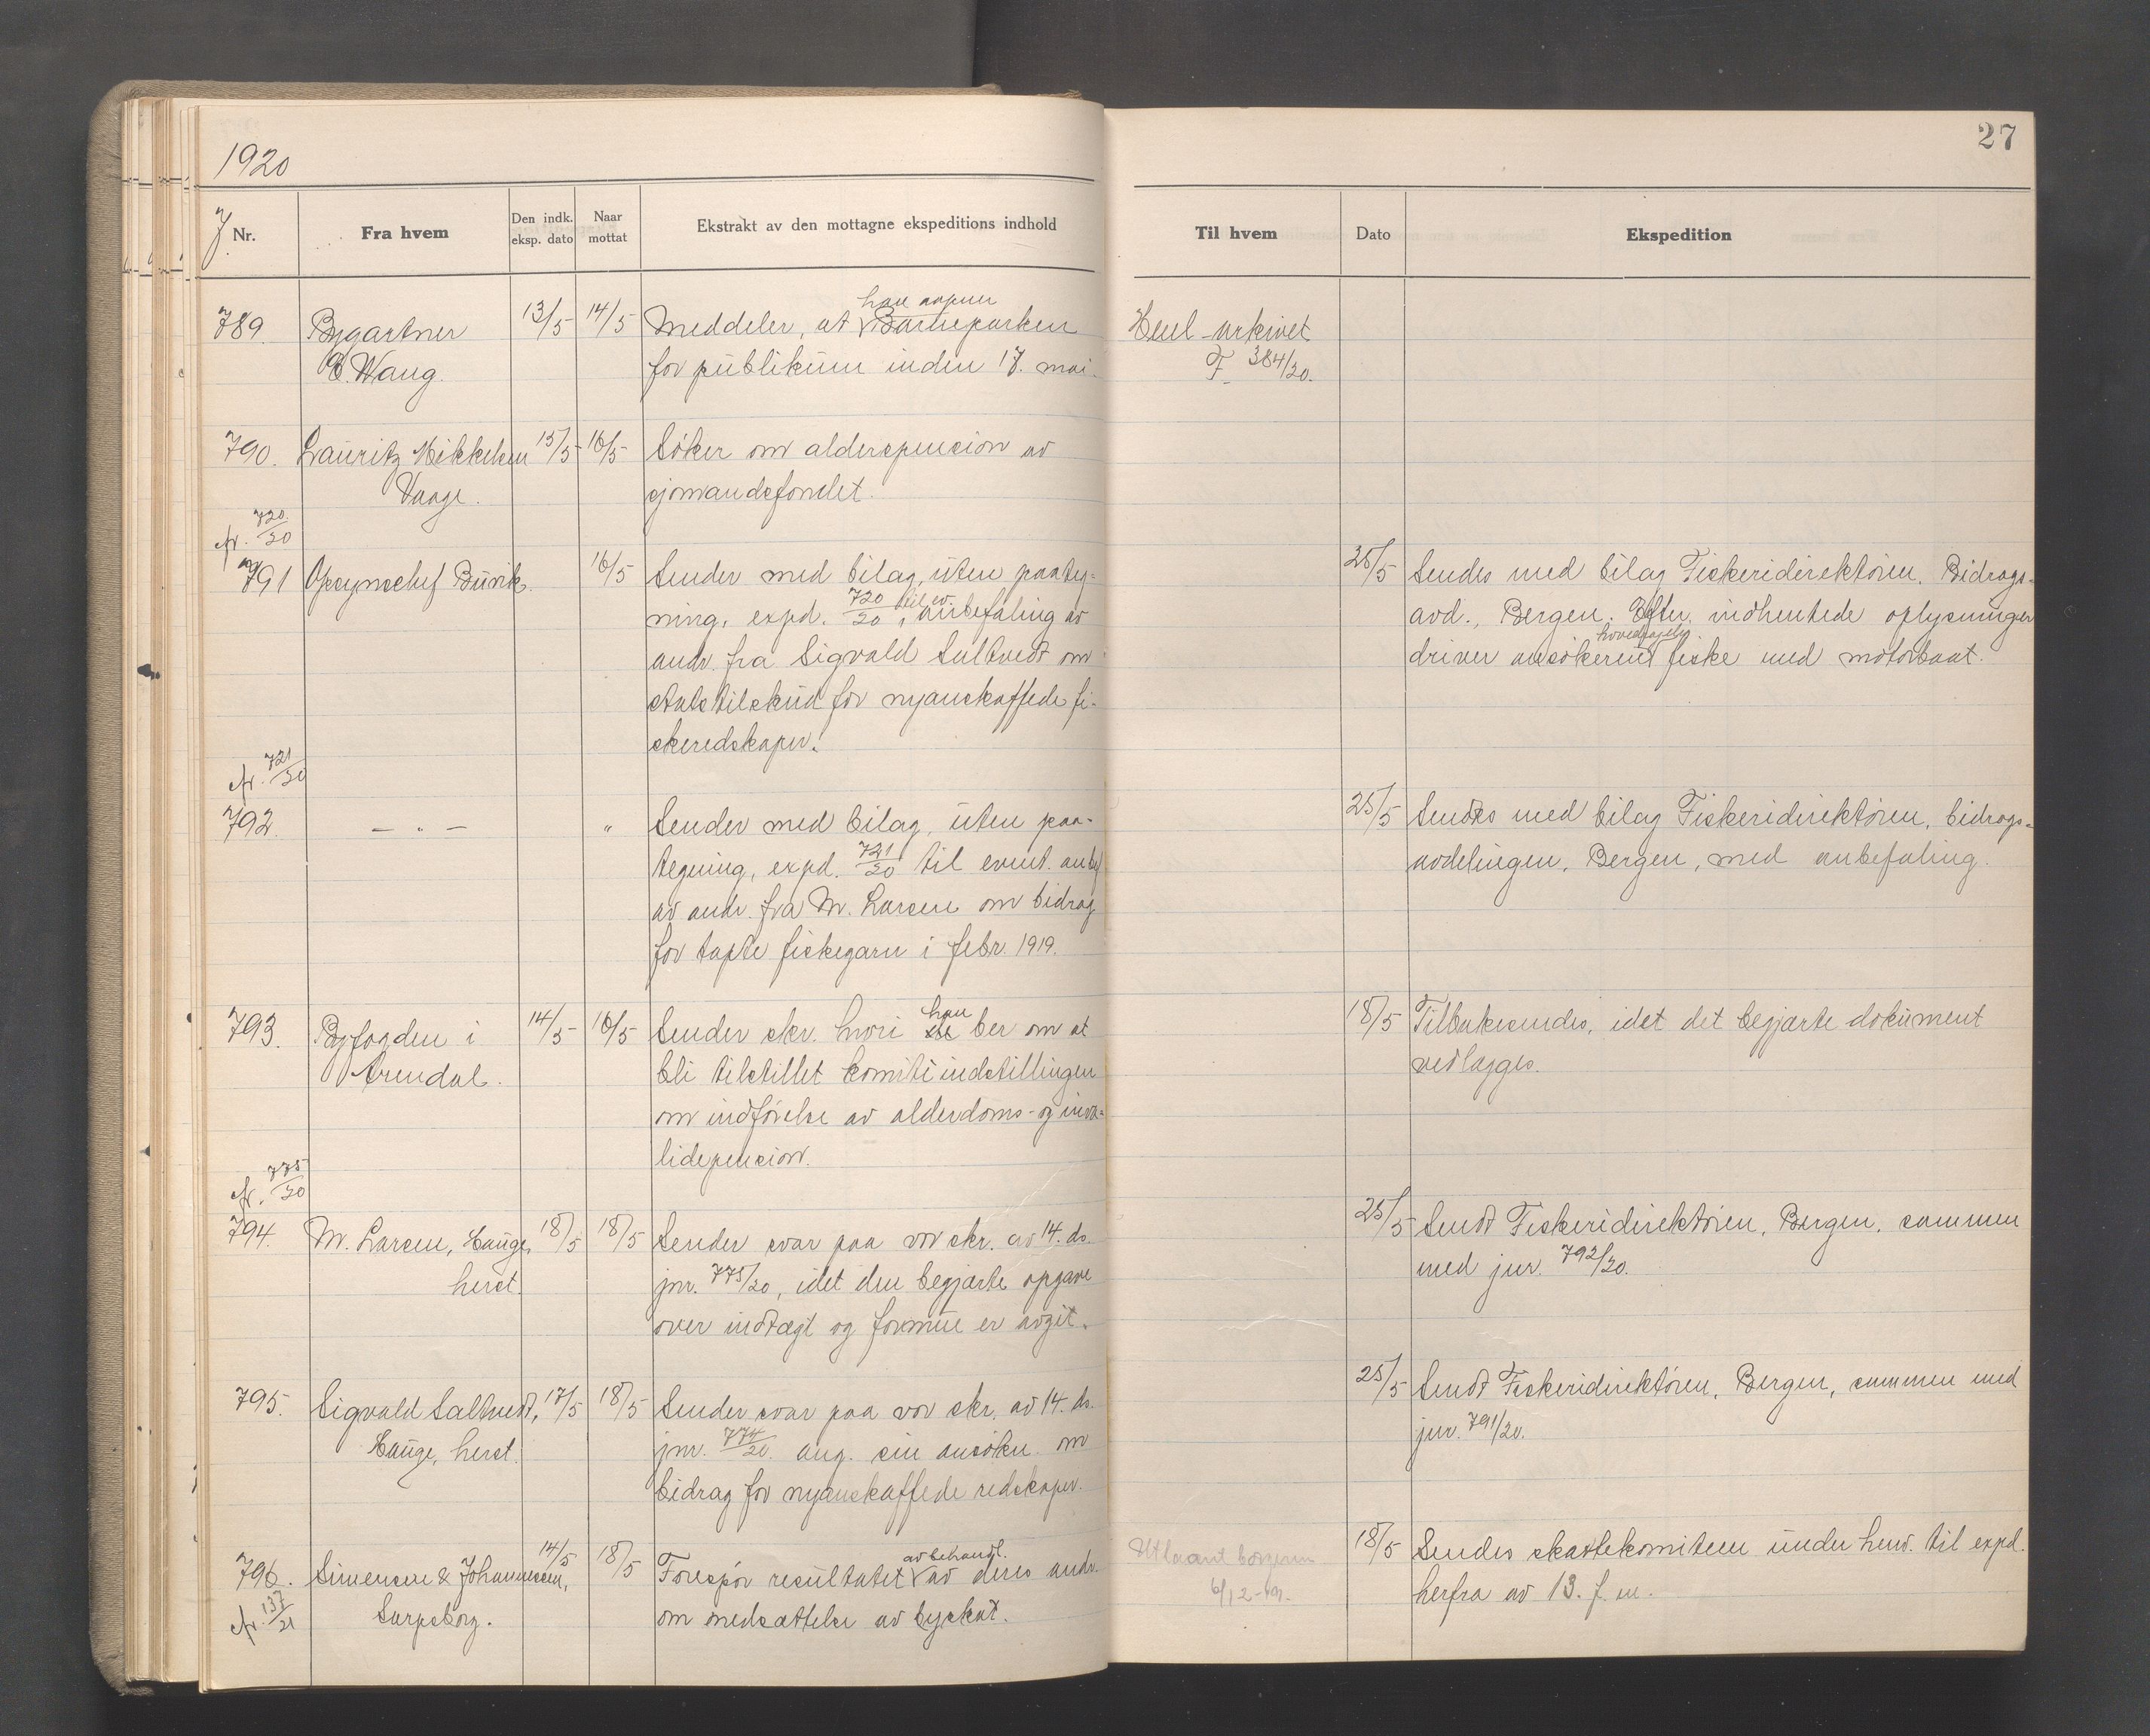 1920
27
J. Nr.
Fra hvem
Den indk. eksp. dato
Naar mottat
Ekstrakt av den mottagne ekspeditions indhold
Til hvem
Dato
Ekspedition
789. Bygartner 13/5 14/5 Meddeler, at han aapner Barneparken
E. Waug. for publikum inden 17. mai.
Henl. arkivet
F 384/20.
790. Lauritz Mikkelsen 15/5 16/5 Søker om alderspension av
Vaage. sjømandsfondet.
cfr. 720/20
og 791 Opsynschef Buvik. 16/5 Sender med bilag, uten paateg-
ning, expd. 720/20 til ev. anbefaling av
andr. fra Sigvald Saltvedt om
statstilskud for nyanskaffede fi-
skeredskaper.
25/5 Sendes med bilag Fiskeridirektøren, Bidrags-
avd., Bergen. Efter indhentede oplysninger
driver ansøkeren hovedsagelig fiske med motorbaat.
cfr. 721/20
792. — " — " Sender med bilag, uten paa-
tegning, expd. 721/20 til event. anbef.
av andr. fra M. Larsen om bidrag
for tapte fiskegarn i febr. 1919.
25/5 Sendes med bilag Fiskeridirektøren, bidrags-
avdelingen, Bergen, med anbefaling.
793. Byfogden i 14/5 16/5 Sender skr. hvori han ber om at
Arendal. bli tilstillet komiteindstillingen
om indførelse av alderdoms- og inva-
lidepension.
18/5 Tilbakesendes, idet det begjærte dokument
vedlægges.
cfr. 775/20
794. M. Larsen, Hauge, 18/5 18/5 Sender svar paa vor skr. av 14. ds.
herst. jnr. 775/20, idet den begjærte opgave
over indtægt og formue er avgit.
25/5 Sendt Fiskeridirektøren, Bergen, sammen
med jnr. 792/20.
795. Sigvald Saltvedt, 17/5 18/5 Sender svar paa vor skr. av 14. ds.
Hauge, herst. jnr. 774/20. ang. sin ansøkn. om
bidrag for nyanskaffede redskaper.
25/5 Sendt Fiskeridirektøren, Bergen, sammen med
jnr. 791/20.
796. Simensen & Johannessen, 14/5 18/5 Forespør resultatet av behandl. av deres andr.
cfr. 137/21 Sarpsborg. om nedsættelse av byskat.
Utlaant
6/12-19.
18/5 Sendes skattekomiteen under henv. til expd.
herfra av 13. f. m.